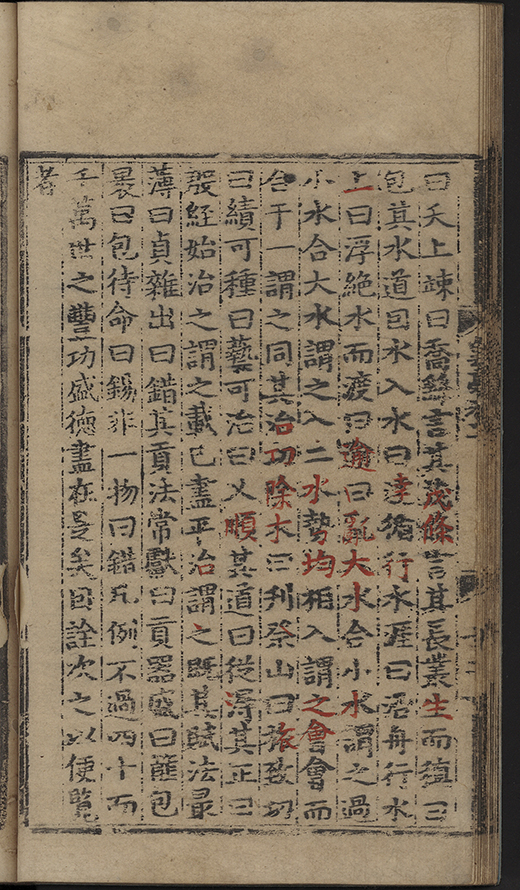 曰夭上竦曰喬繇言其茂條言其長叢生而積曰
包其水道因水入水曰達循行水涯曰沿舟行水
上曰浮絶水而渡曰逾曰亂大水合小水謂之過
小水合大水謂之入二水勢均相入謂之會會而
合于一謂之同其治功除木曰刊祭山曰旅致功
曰績可種曰藝可治曰乂順其道曰從淂其正曰
殷經始治之謂之載已盡平治謂之旣其賦法最
薄曰貞雜出曰錯其貢法常獻曰貢器盛曰篚包
裹曰包待命曰錫非一物曰錯凡例不過四十而
千萬世之豐功盛德盡在是矣因詮次之以便覽
者